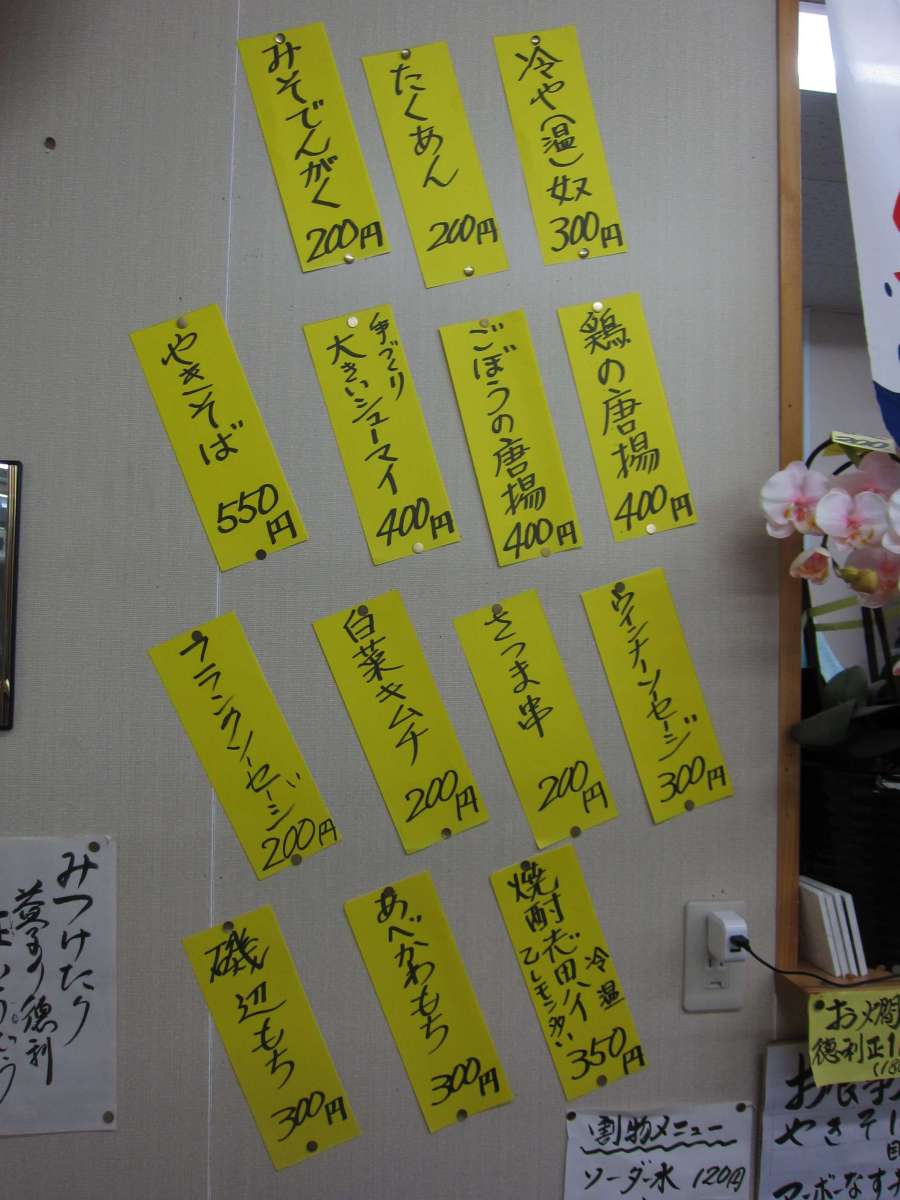 冷や(温)奴
300円
たくあん
200円
みそでんがく
200円
鶏の唐揚
400円
ごぼうの唐揚
400円
手づくり
大きいシューマイ
400円
やきそば
550円
ウインナーソーセージ
300円
さつま串
200円
白菜キムチ
200円
フランクソーセージ
200円
冷 温
350円
あべかわもち
300円
磯辺もち
300円
みつけたり
割物メニュー
ソーダー水 120円
お燗
徳利正1
やきそ
マーボーなす
200